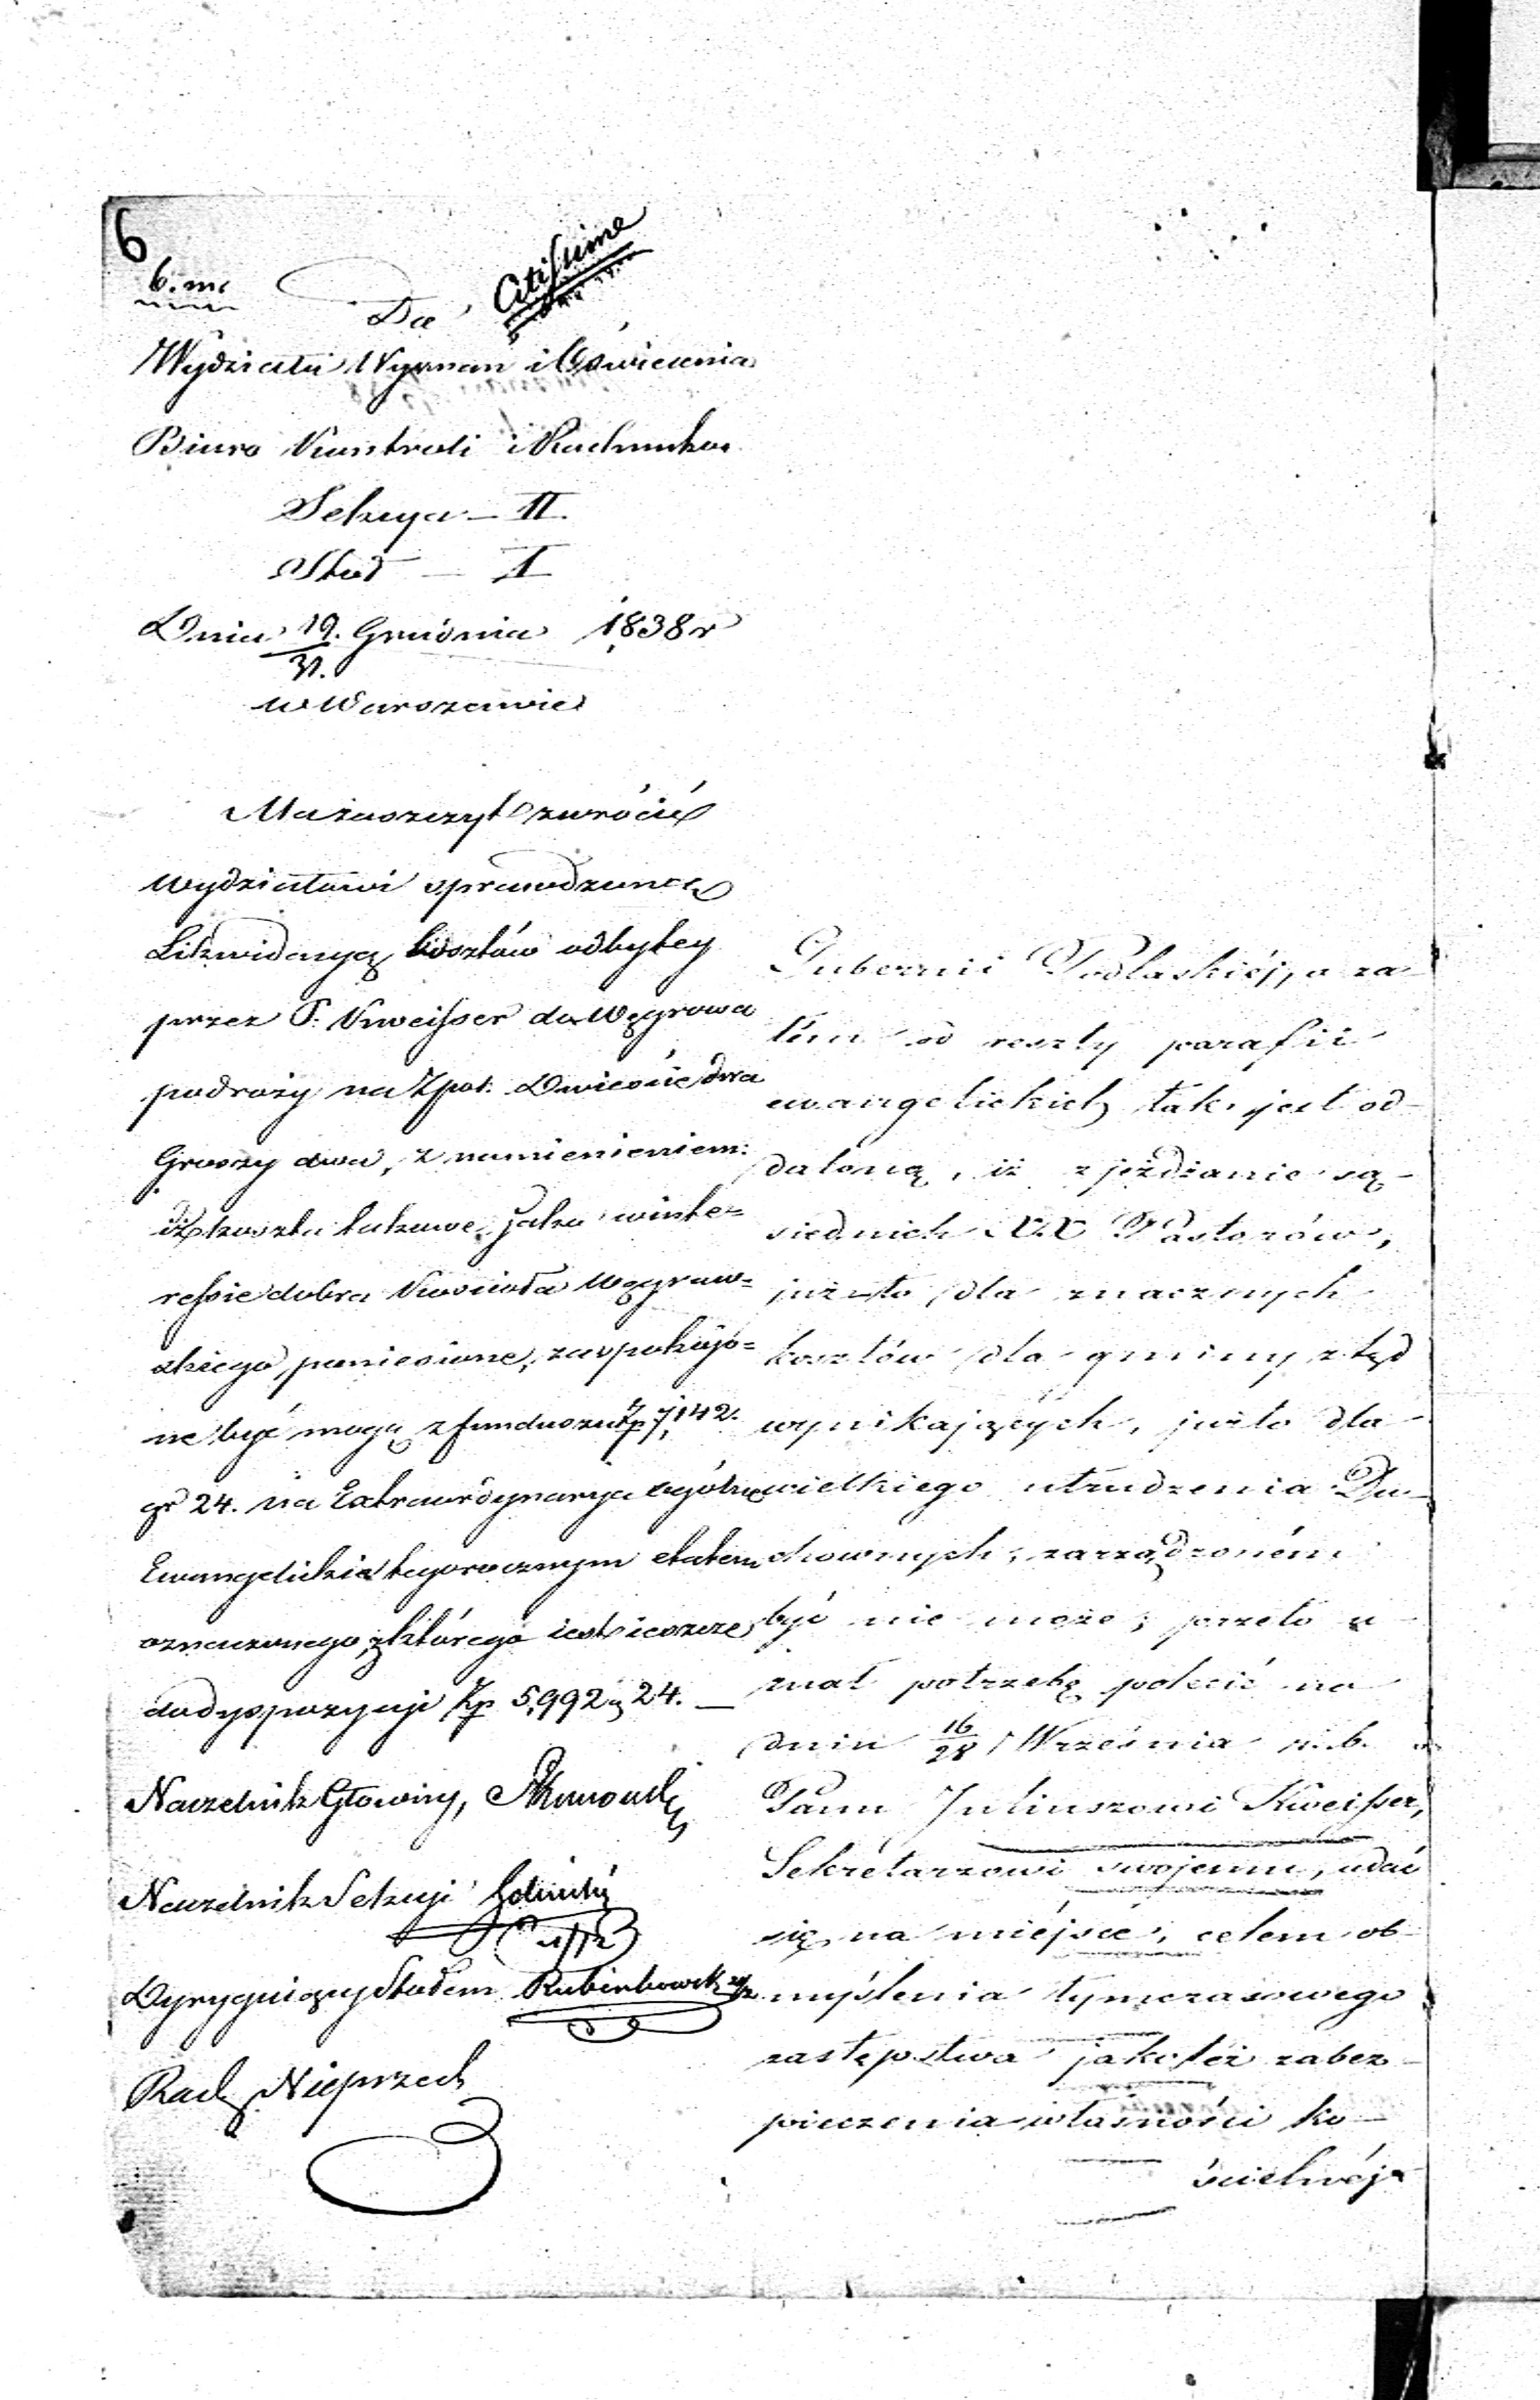 6
b. m.
Citissime
Do
Wydziału Wyznań i Oświecenia
Biuro Kontroli i Rachunków
Sekcya – II.
Stół – I
Dnia 19./31. Grudnia 1838 r
w Warszawie
Ma zaszczyt zwrócić
Wydziałowi sprawdzoną
Likwidacyą kosztów odbytey
przez P. Kweisser do Węgrowa
podróży na Zpol. Dwieście dwa
Groszy dwa, z namienieniem:
iż koszta takowe, jako w inte=
ressie dobra Kościoła Węgrow=
skiego poniesione, zaspokojo=
ne być mogą z funduszu Zp 7,142.
gr 24. na Extraordynarya ogólne
Ewangelickie tegorocznym etatem
oznaczonego, z którego jest jeszcze
do dyspozycyi Zp 5,992 g 24. —
Naczelnik Główny,
Naczelnik Sekcyi
Dyrygujący Stołem Rubinkowski
Rach. Nieprzecki
Gubernii Podlaskiéj, a za-
tém od reszty parafii
ewangelickich tak jest od-
daloną, iż zjeżdżanie są-
siednich XX Pastorów,
już to dla znacznych
kosztów dla gminy ztąd
wynikających, już to dla
wielkiego utrudzenia Du-
chownych, zarządzoném
być nie może; przeto u-
znał potrzebę polecić na
dniu 16/28 Września r. b.
Panu Juliuszowi Kweisser,
Sekretarzowi swojemu, udać
się na miejsce, celem ob-
myślenia tymczasowego
zastępstwa jako też zabez-
pieczenia własności ko-
ścielnéj